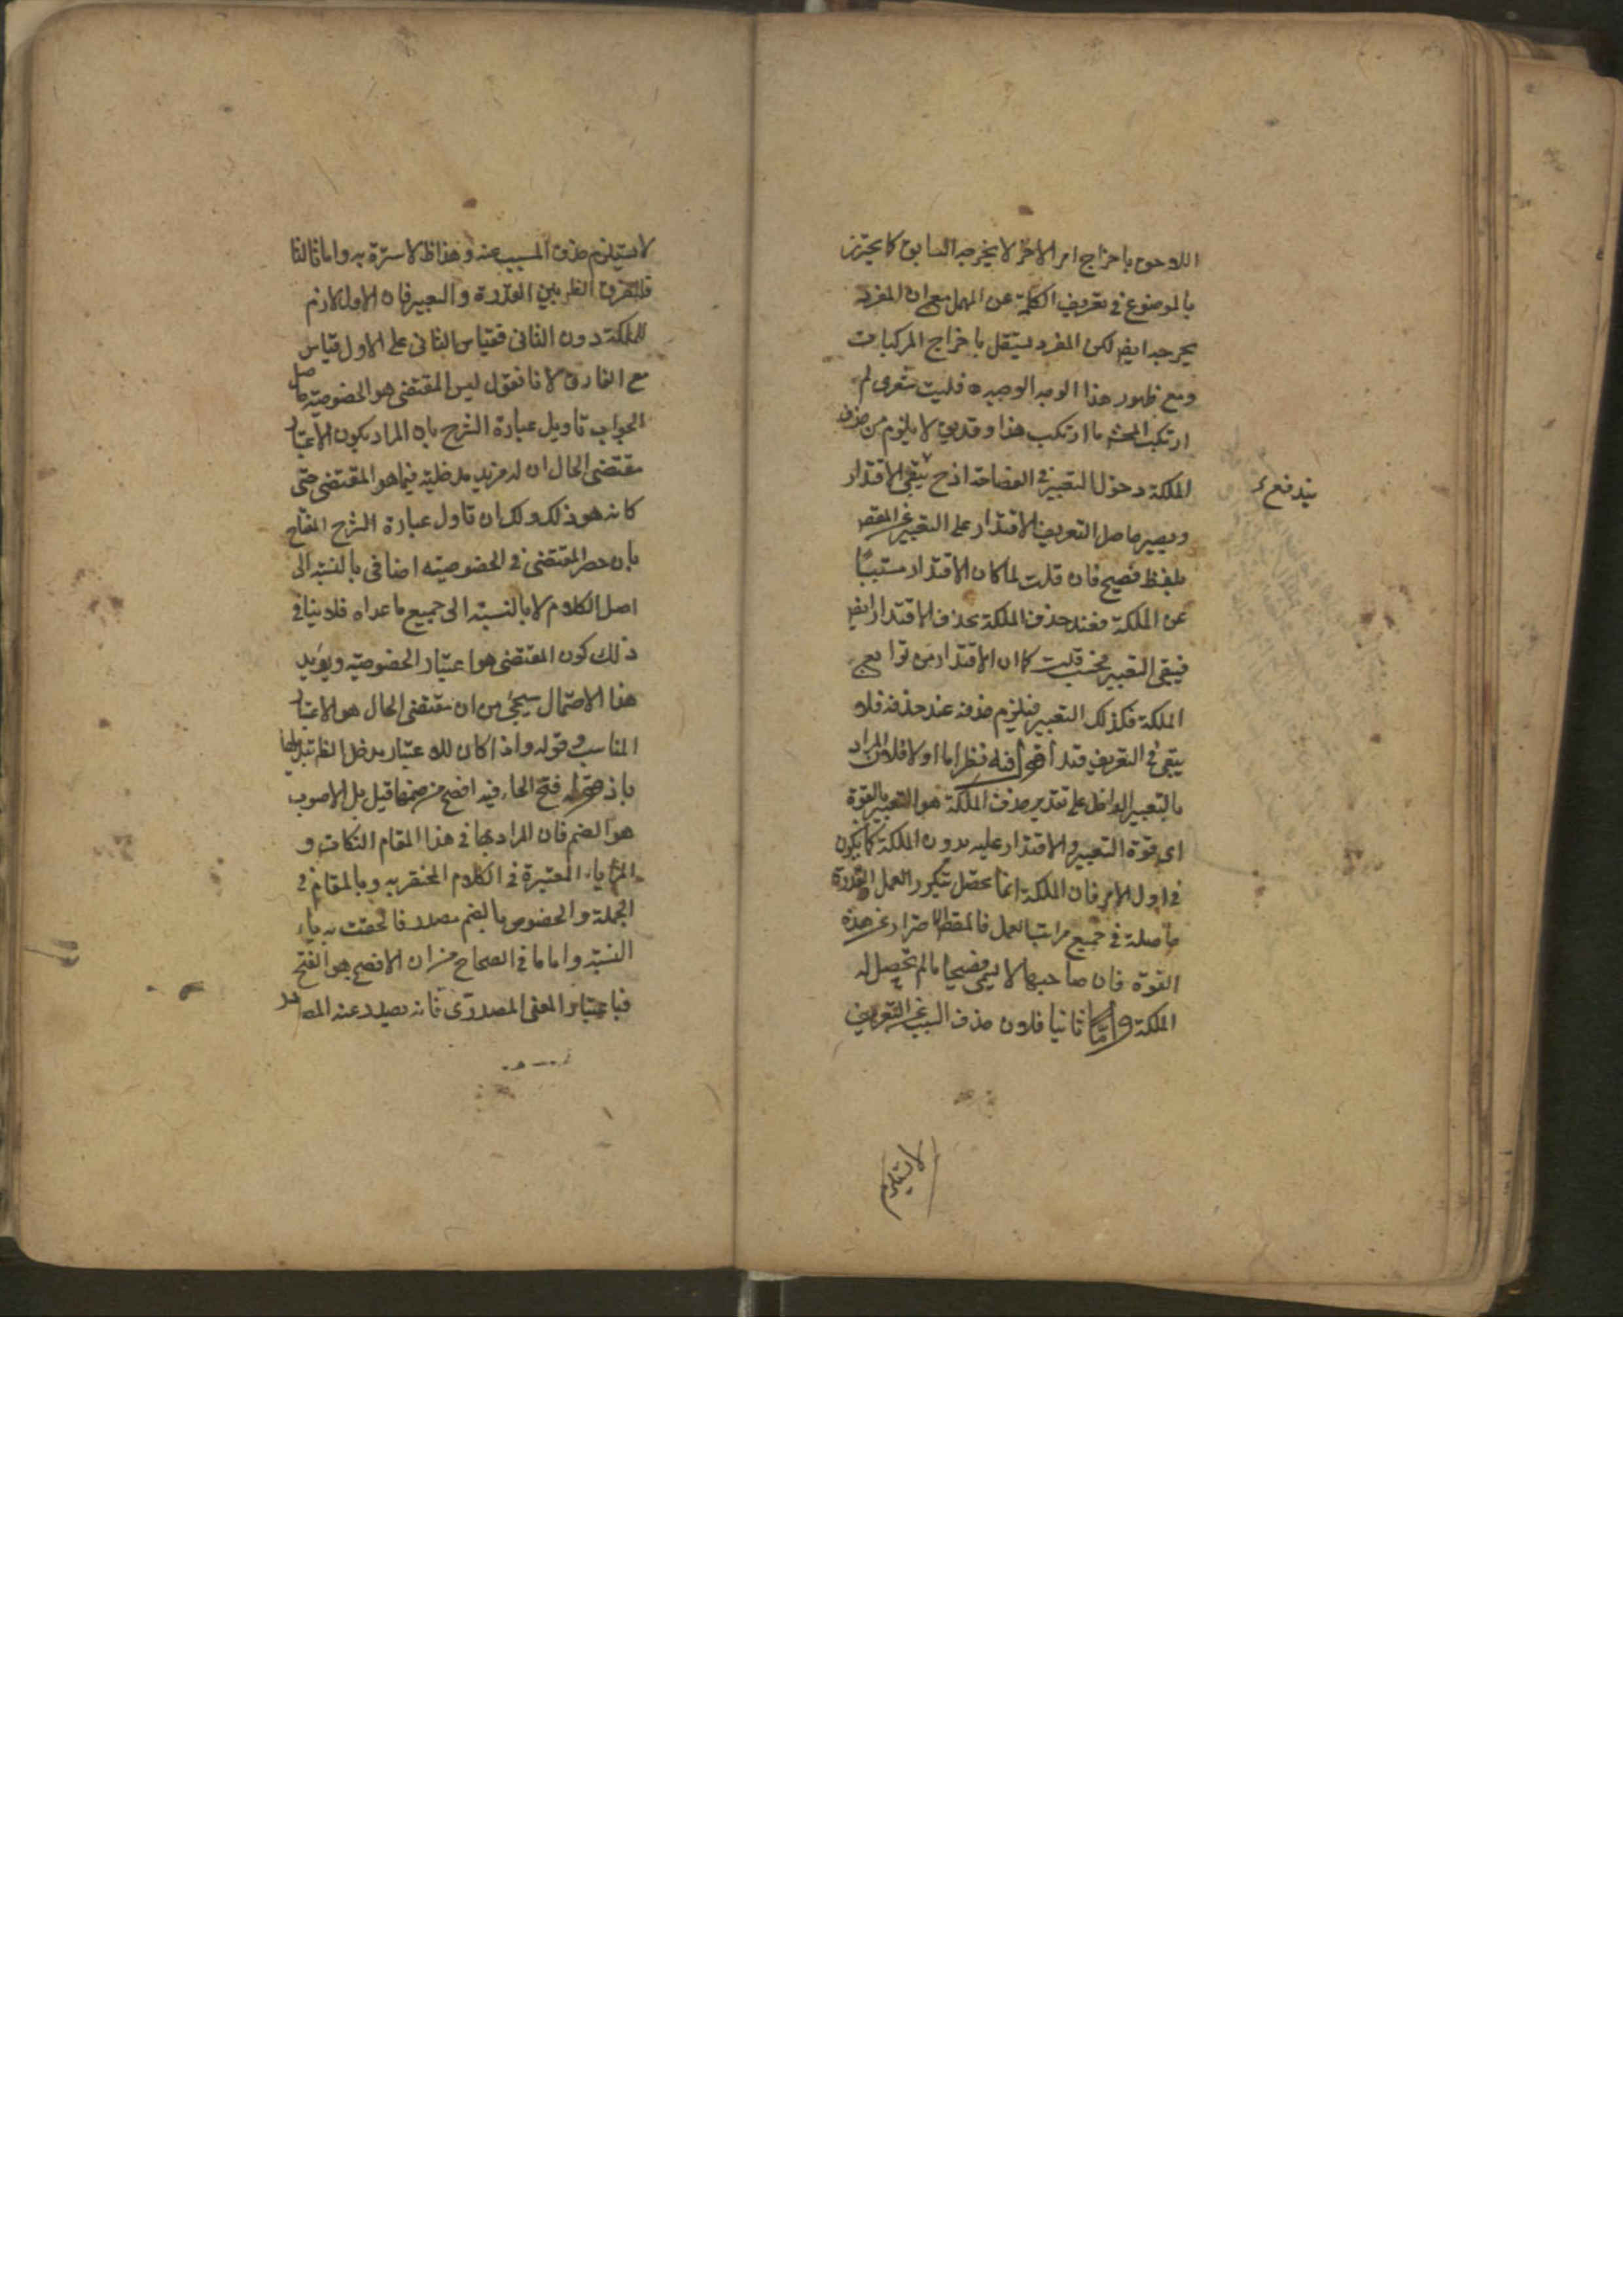 اللاحق باخراج امر الاخر لا يخرجه السابق كما يحترز
بالموضوع في تعريف الكلمة عن المهمل مع ان المفرد
يخرجه ايض لكن المفرد يستقل باخراج المركبات
ومع ظهور هذا الوجه الوجيه فليت شعرى لم
ارتكب المحشى ما ارتكب هذا وقد يق لا يلزم من حذف
الملكة دخول التعبير في الفصاحة اذ ح يبقى الاقتدار
ويصير حاصل التعريف الاقتدار على التعبير عن المقص
بلفظ فصيح فان قلت لما كان الاقتدار مسببا
عن الملكة فعند حذف الملكة يحذف الاقتدار ايض
فيبقى التعبير فحسب قلت كما ان الاقتدار من توابع
الملكة فكذلك التعبير فيلزم حذفه عند حذفه فلا
يبقى في التعريف قيد اقول فيه نظر اما اولا فلان المراد
بالتعبير الداخل على تقدير حذف الملكة هو التعبير بالقوة
اى قوة التعبير والاقتدار عليه بدون الملكة كما يكون
في اول الامر فان الملكة انما تحصل بتكرر العمل والقدرة
حاصلة في جميع مراتب العمل فالمقص الاحتراز عن هذه
القوة فان صاحبها لا يسمى فصيحا ما لم تحصل له
الملكة واما ثانيا فلان حذف السبب عن التعريف
يندفع
لا يستلزم
لا يستلزم حذف المسبب عنه وهذا ظ لا سترة به واما ثالثا
فللفرق الظ بين القدرة والتعبير فان الاول لازم
للملكة دون الثانى فقياس الثانى على الاول قياس
مع الفارق لانا نقول ليس المقتضى هو الخصوصية حاصل
الجواب تاويل عبارة الشرح بان المراد بكون الاعتبار
مقتضى الحال ان له مزيد مدخلية فيما هو المقتضى حتى
كانه هو ذلك ولك ان تاول عبارة الشرح المفتاح
بان حصر المقتضى في الخصوصيته اضافى بالنسبة الى
اصل الكلام لا بالنسبة الى جميع ما عداه فلا ينافى
ذلك كون المقتضى هو اعتبار الخصوصية ويؤيد
هذا الاحتمال سيجئ من ان مقتضى الحال هو الاعتبار
المناسب قوله واذا كان للاعتبار مدخل الظ
فتح الحاء فيه افصح من ضمها قيل بل الاصوب
هو الضم فان المراد بها في هذا المقام النكات و
المزايا المعتبرة في الكلام المختصة به وبالمقام في
الجملة والخصوص بالضم مصدر فالحقت به ياء
النسبة واما ما في الصحاح من ان الافصح هو الفتح
فباعتبار المعنى المصدرى فانه يصدر عنه المصادر